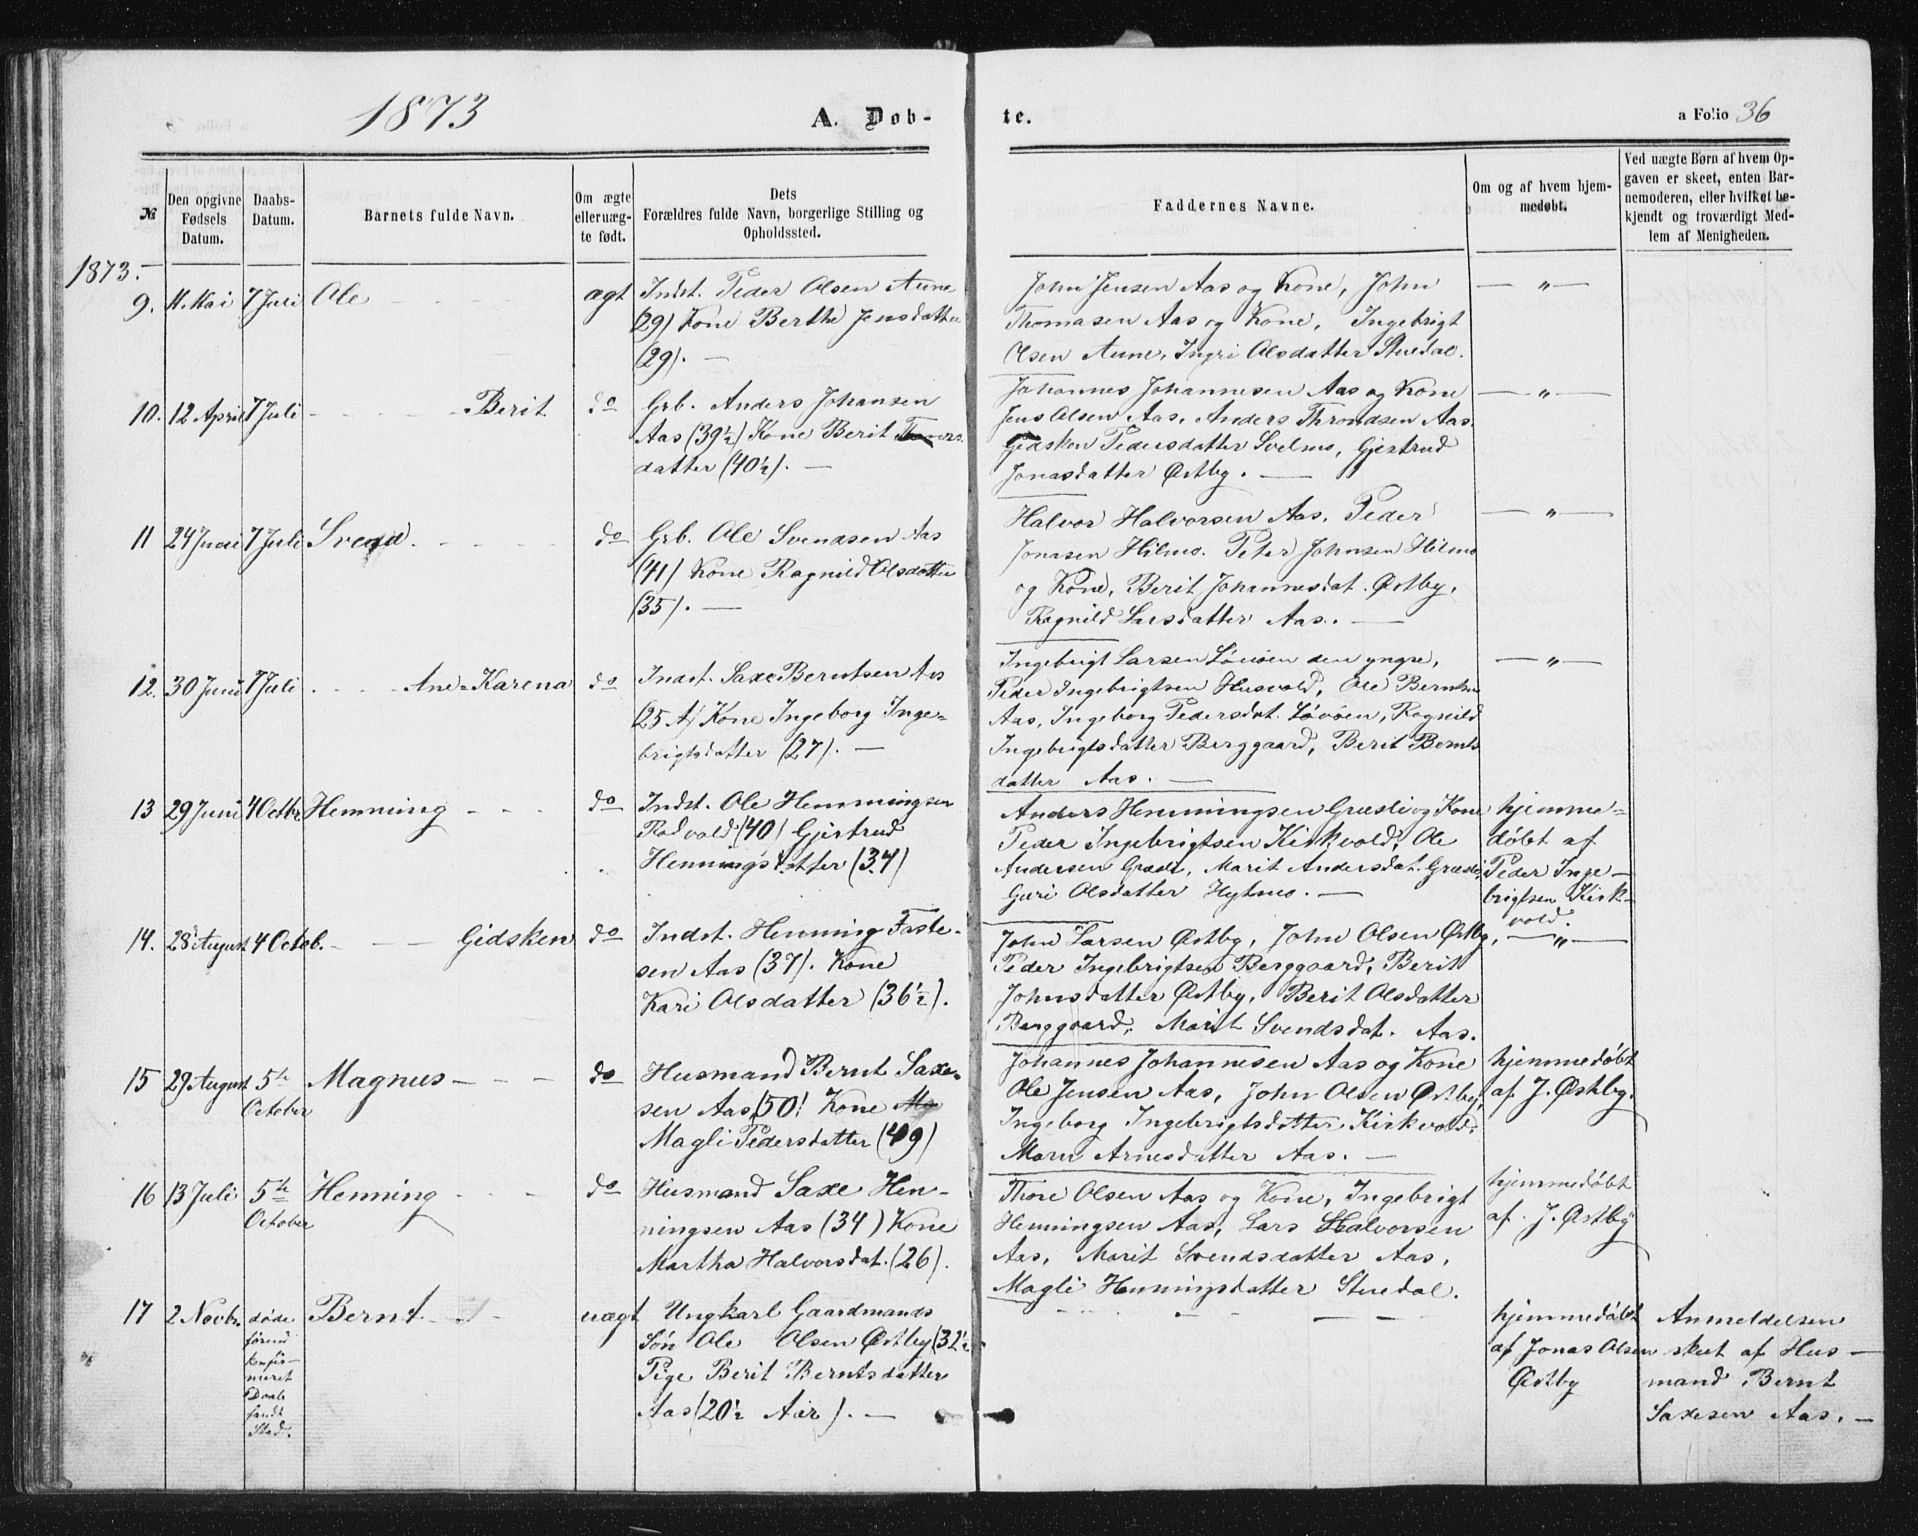 1873
A. Døb-
te.
a Folio 36
№
Den opgivne
Fødsels
Datum.
Daabs-
Datum.
Barnets fulde Navn.
Om ægte
elleruæg-
te født.
Dets
Forældres fulde Navn, borgerlige Stilling og
Opholdssted.
Faddernes Navne.
Om og af hvem hjem-
medøbt.
Ved uægte Børn af hvem Op-
gaven er skeet, enten Bar-
nemoderen, eller hvilket be-
kjendt og troværdigt Med-
lem af Menigheden.
1873.
9. 11. Mai 7 Juli Ole ægt
Indst. Peder Olsen Aune
(29) Kone Berthe Jensdatter
(29). —
John Jensen Aas og Kone, John
Thomasen Aas og Kone, Ingebrigt
Olsen Aune, Ingri Olsdatter Stuedal.
— " —
10. 12 April 7 Juli Berit do
Grb. Anders Johansen
Aas (39½) Kone Berit
datter (40½). —
Johannes Johannesen Aas og Kone
Jens Olsen Aas, Anders Throndsen Aas.
Gidsken Pedersdatter Svelmo, Gjertrud
Jonasdatter Østby. —
— " —
11 24 Juni 7 Juli Svend do
Grb. Ole Svendsen Aas
(41) Kone Ragnild Olsdatter
(35). —
Halvor Halvorsen Aas. Peder
Jonasen Hilmo. Peter Johnsen Hilmo
og Kone, Berit Johannesdat. Østby,
Ragnild Larsdatter Aas. —
— " —
12. 30 Juni 7 Juli Ane-Karena do
Indst. Saxe Berntsen Aas
(25 A) Kone Ingeborg Inge-
brigtsdatter (27). —
Ingebrigt Larsen Løvøen den yngre,
Peder Ingebrigtsen Husvold, Ole Berntsen
Aas, Ingeborg Pedersdat. Løvøen, Ragnild
Ingebrigtsdatter Berggaard, Berit Bernts
datter Aas. —
— " —
13 29 Juni 4 Octbr Hemming do
Indst. Ole Hemmingsen
Rodvold (40) Gjertrud
Henningsdatter (34)
Anders Hemmingsen Græsli og Kone
Peder Ingebrigtsen Kirkvold, Ole
Andersen Græsli, Marit Andersdat. Græsli,
Guri Olsdatter Hytmo. —
hjemme-
døbt af
Peder Inge-
brigtsen Kirk-
vold.
14. 28 August 4 Octob. Gidsken do
Indst. Henning Faste-
sen Aas (37). Kone
Kari Olsdatter (36½).
John Larsen Østby, John Olsen Østby,
Peder Ingebrigtsen Berggaard, Berit
Johnsdatter Østby, Berit Olsdatter
Berggaard, Marit Svendsdat. Aas.
— " —
15 29 August 5te
October
Magnus do
Husmand Bernt Saxe-
sen Aas (50) Kone Ma
Magli Pedersdatter (49)
Johannes Johannesen Aas og Kone
Ole Jensen Aas, John Olsen Østby,
Ingeborg Ingebrigtsdatter Kirkvold,
Arnesdatter Aas. —
hjemmedøbt
af J. Østby.
16 13 Juli 5te
October
Henning do
Husmand Saxe Hen-
ningsen Aas (34) Kone
Martha Halvorsdat. (26).
Thore Olsen Aas og Kone, Ingebrigt
Henningsen Aas, Lars Halvorsen
Aas, Marit Svendsdatter Aas,
Magli Henningsdatter Stuedal.
hjemmedøbt
af J. Østby
17 2 Novbr. døde
førend
konfir-
meret
Daab
fandt
Sted.
Bernt uægt
Ungkarl Gaardmands
Søn Ole Olsen Østby (32½
Pige Berit Berntsdatter
Aas (20½ Aar). —
hjemmedøbt
af Jonas Olsen
Østby
Anmeldelsen
skeet af Hus-
mand Bernt
Saxesen Aas. —